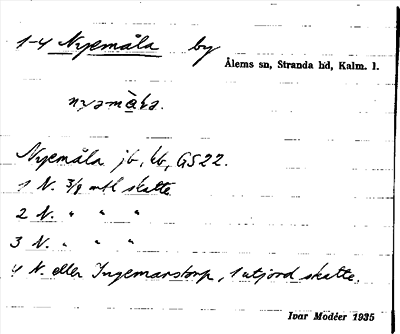 1-4 Nyemåla by
Ålems sn, Stranda hd, Kalm. l.
Nyemåla jb, kb, GS22.
1 N. 3/8 mtl skatte
2 N. " " "
3 N. " " "
4 N. eller Ingemarstorp, 1 utjord skatte.
Ivar Modéer 1935